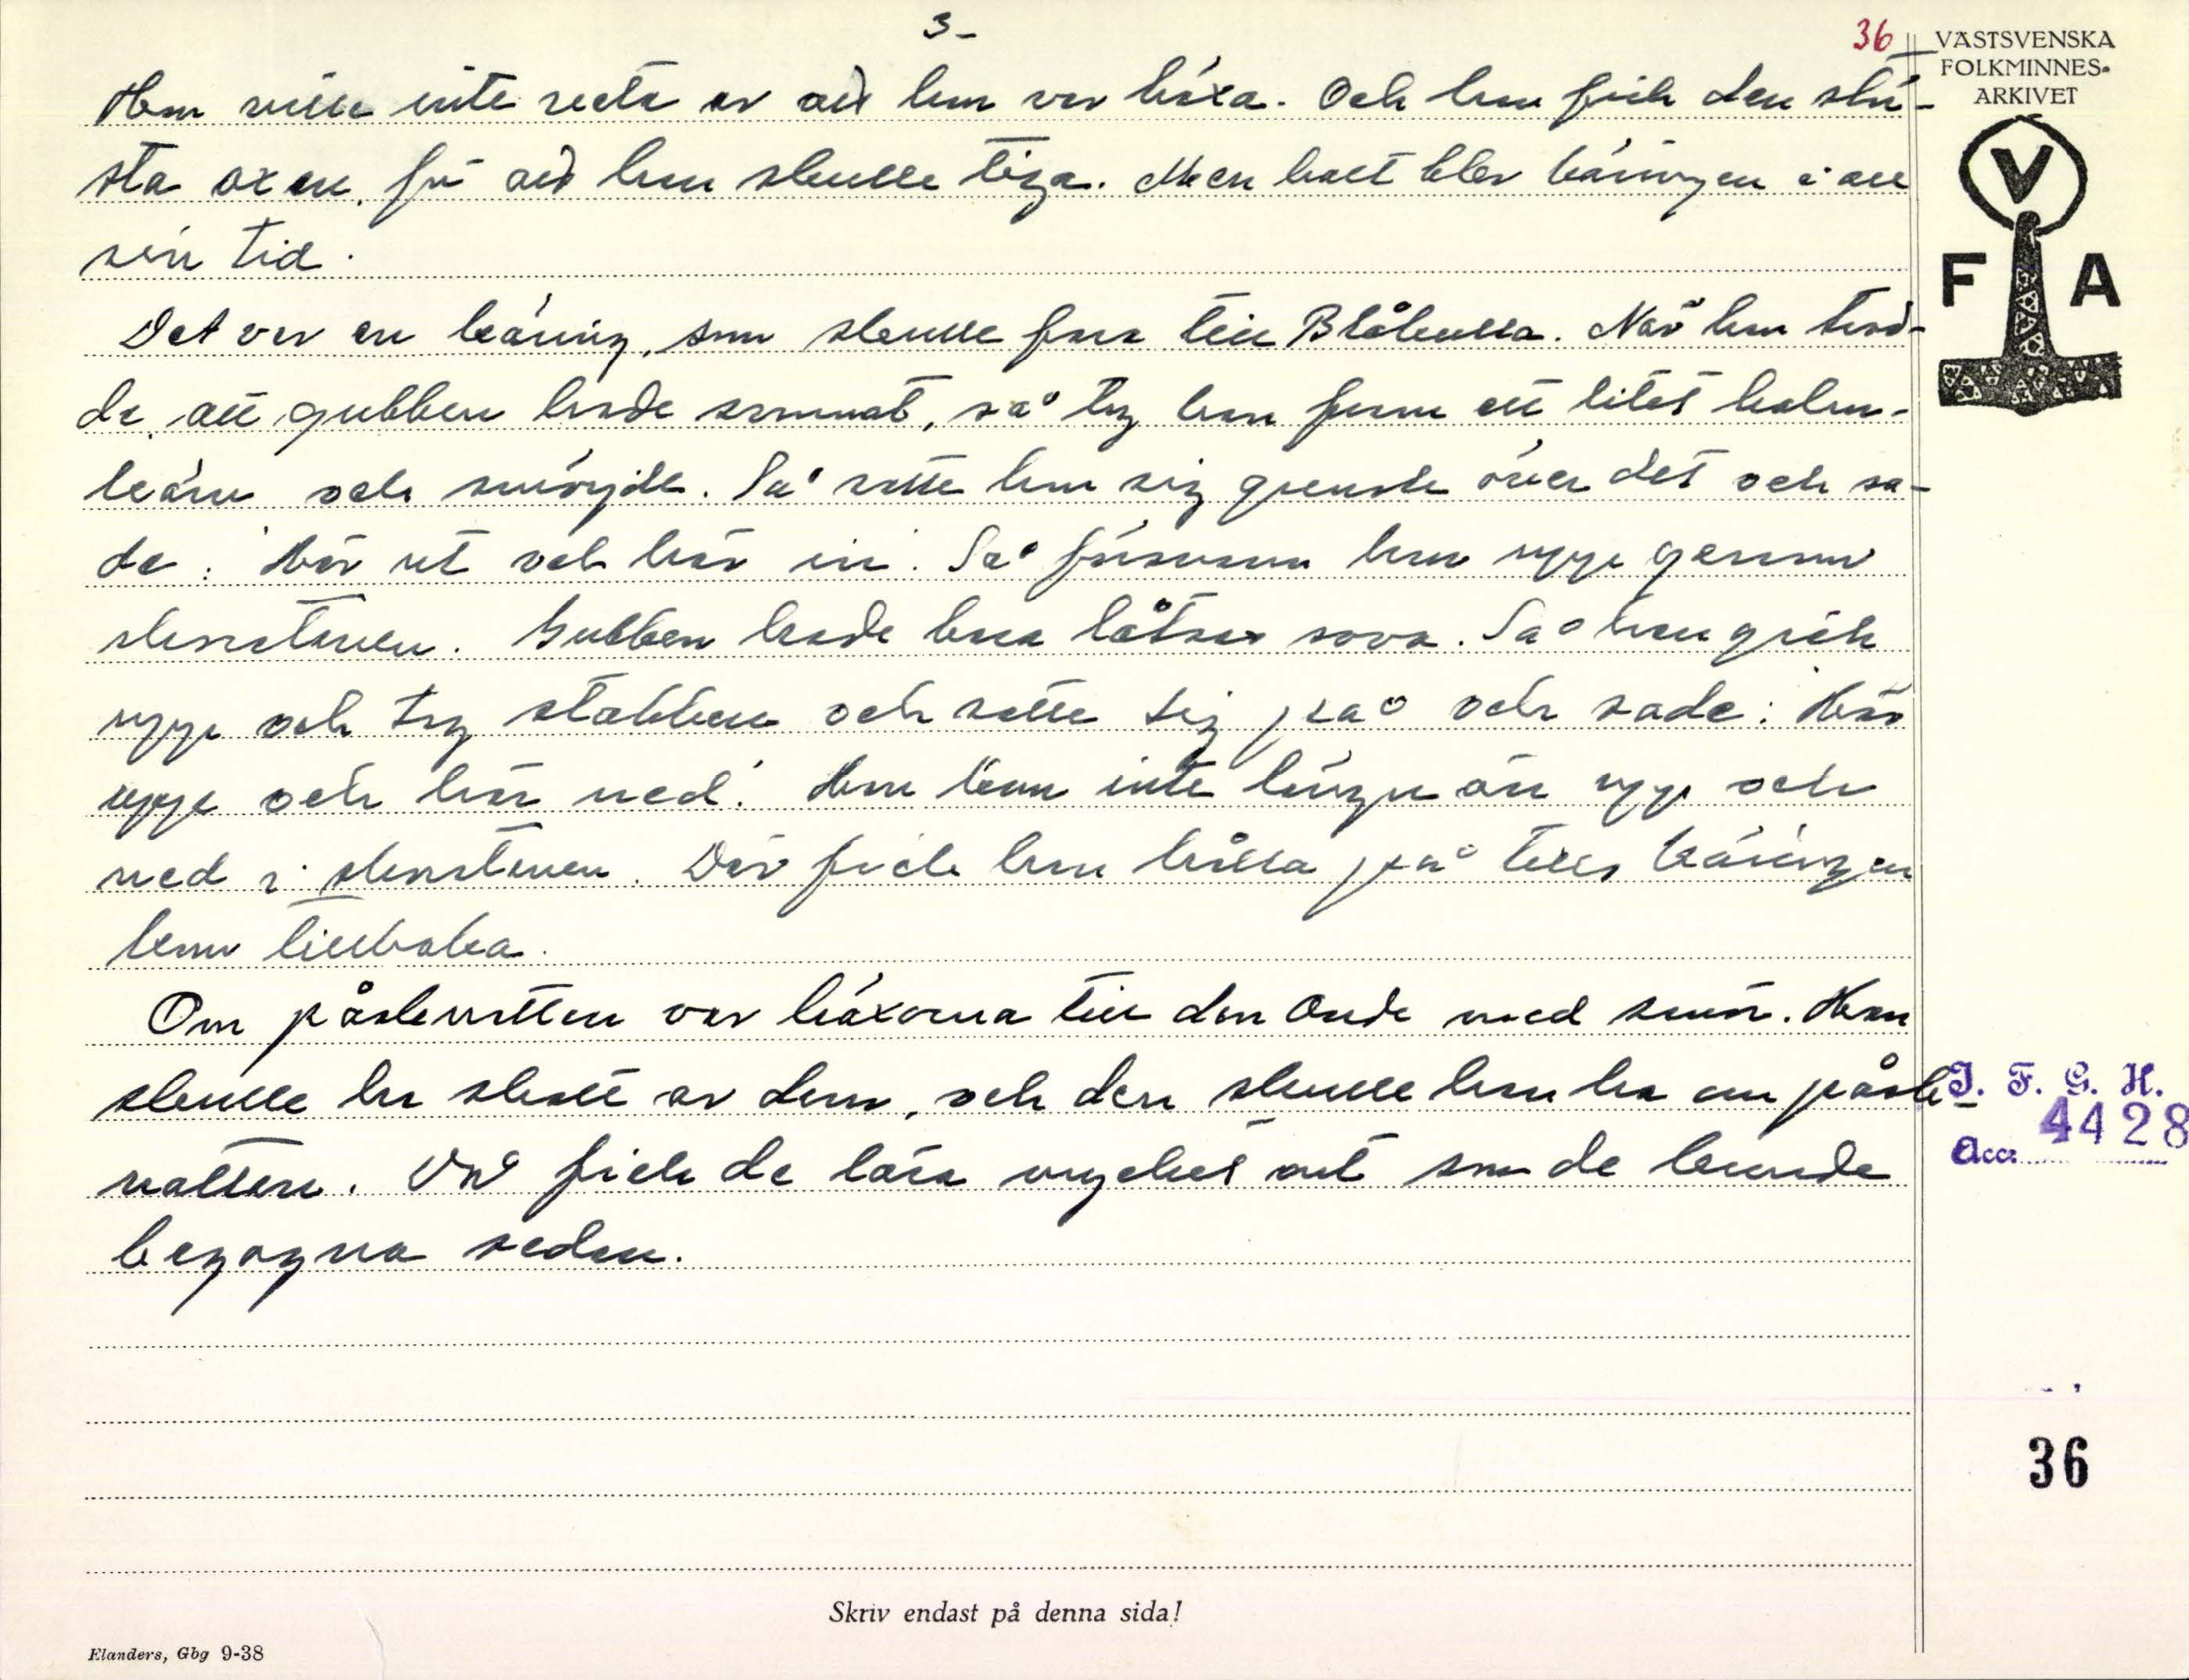 3-
36
VÄSTSVENSKA
FOLKMINNES-
ARKIVET
V
F A
Hon ville inte veta av att hon var häxa. Och han fick den stör-
sta oxen, för att han skulle tiga. Men halt blev käringen i all
sin tid.
Det var en käring, som skulle fara till Blåkulla. När hon trod-
de, att gubben hade somnat, så tog hon fram ett litet halm-
kärv och smörjde. Så satte hon sig grensle över det och sa-
de: Här ut och här in. Så försvann hon upp genom
skorstenen. Gubben hade bara låtsas sova. Så han gick
upp och tog stakken och satte sig på och sade: Här
upp och här ned. Han kom inte längre än upp och
ned i skorstenen. Där fick han hålla på tills käringen
kom tillbaka.
Om påsknatten var häxorna till den Onde med smör. Han
skulle ha skatt av dem, och den skulle han ha om påsk
natten. Då fick de lära mycket ont som de kunde
begagna sedan.
I. F. G. H.
Acc. 4428
36
Skriv endast på denna sida!
Elanders, Gbg 9-38